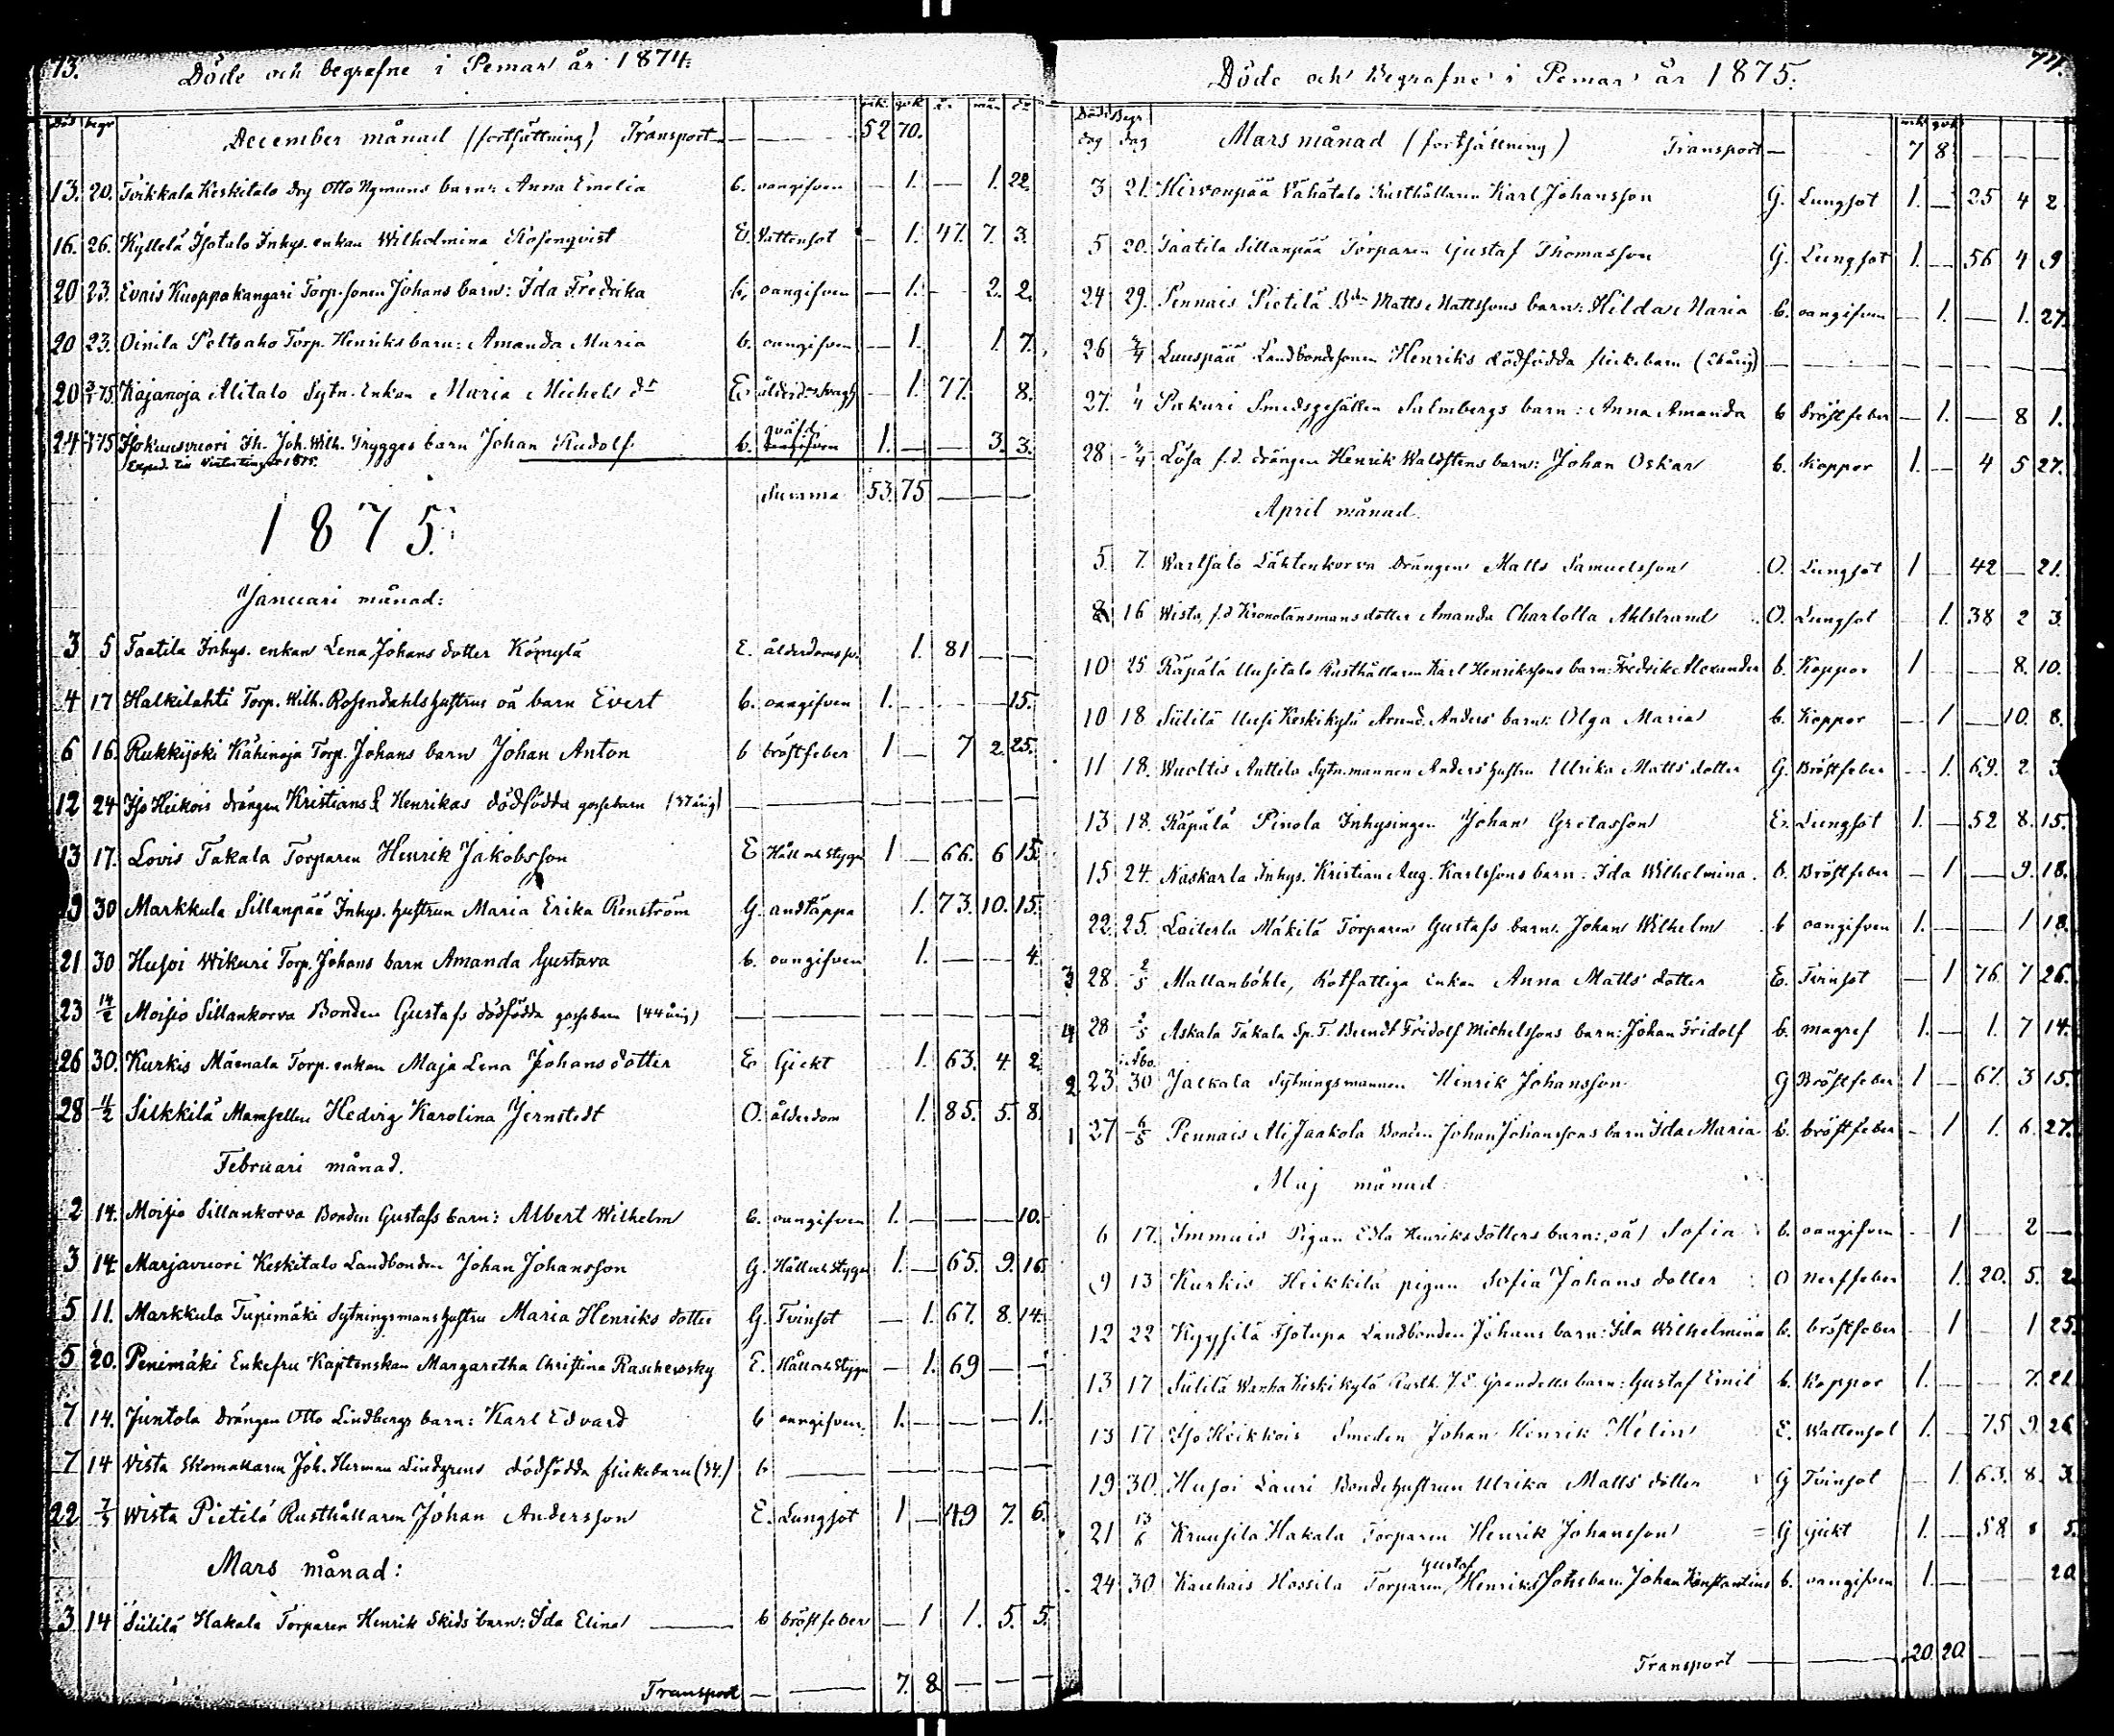 73.
Döde och begrafne i Pemar år 1874.
Död begr mk. qvk år mån da
December månad (fortsättning) Transport 52 70.
13. 20. Toikkala Keskitalo drg Otto Nymans barn: Anna Emelia b. oangifven — 1. — 1. 22.
16. 26. Kyllelä Isotalo Inhys. enkan Wilhelmina Rosenqvist E. Vattensot — 1. 47. 7. 3.
20 23. Evais Knoppakangari Torp. sonen Johans barn: Ida Fredrika b. oangifven — 1. — 2. 2.
20 23. Oinila Peltoaho Torp. Henriks barn: Amanda Maria b. oangifven — 1. 1. 7.
20 75 Kajanoja Alitalo Sytn. Enkan Maria Michels dr E. — 1. 77. 8.
24 75 Isokuusvuori Joh. Wilh. Trygges barn Johan Rudolf b. 1. — — 3. 3.
Summa 53. 75 — — —
1875.
Januari månad:
3 5 Taatila Inhys. enkan Lena Johans dotter Kömylä E. ålderdomssv. 1. 81 — —
4 17 Halkilahti Torp. Wilh. Rosendahls hustrus oä barn Evert b. oangifven 1. — — 15.
6 16. Rukkijoki Kähinoja Torp. Johans barn Johan Anton b bröstfeber 1 — 7 2. 25.
12 24 Iso Heikois drängen Kristians & Henrikas dödfödda gossebarn (37 årig) — — — — —
13 17. Lovis Takala Torparen Henrik Jakobsson E Håll och Stygn 1 — 66. 6 15.
19 30 Markkula Sillanpää Inhys. hustrun Maria Erika Renström G. andtäppa 1. 73. 10. 15.
21 30 Husoi Wikuri Torp. Johans barn Amanda Gustava b. oangifven 1. — — 4.
23 14/2 Moisio Sillankorva Bonden Gustafs dödfödda gossebarn (44 årig) — — — — —
26 30. Kurkis Mäenala Torp. enkan Maja Lena Johans dotter E. Gickt 1. 63. 4. 2.
28 4/2 Silkkilä Mamsellen Hedvig Karolina Jernstedt O. ålderdom 1. 85. 5. 8.
Februari månad.
2 14. Moisio Sillankorva Bonden Gustafs barn: Albert Wilhelm b. oangifven 1. — — — 10.
3 14. Marjavuori Keskitalo Landbonden Johan Johansson G. Håll och Stygn 1. — 65. 9. 16.
5 11. Markkula Tupimäki Sytningsmans hustru Maria Henriks dotter G. Tvinsot — 1. 67. 8. 14.
5 20. Penimäki Enkefru Kaptenskan Margaretha Christina Raschewsky E. Håll och Stygn — 1. 69 — —
7 14. Juntola drängen Otto Lindbergs barn: Karl Edvard b oangifven. 1. — — — 1.
7 14 Vista Skomakaren Joh. Herman Lindgrens dödfödda flickebarn (34.) b — — — — —
22 7/3 Wista Pietilä Rusthållaren Johan Andersson E. Lungsot 1 — 49 7. 6.
Mars månad:
3. 14 Siililä Hakala Torparen Henrik Skids barn: Ida Elina b bröstfeber — 1 1. 5. 5.
Transport — — 7. 8 — — —
74.
Döde och Begrafne i Pemar år 1875.
Död Begr.
dag dag Mars månad (fortsättning) Transport — 7 8. — — —
3 21. Hirvonpää Vähätalo Rusthållaren Karl Johansson G. Lungsot 1. — 25 4 2
5 20. Taatila Sillanpää Torparen Gustaf Thomasson G. Lungsot 1. — 56 4 9
24 29. Pennais Pietilä Matts Mattssons barn: Hilda Maria b. oangifven — 1. — 1. 27.
26 3/4 Luuspää Landbondsonen Henriks dödfödda flickebarn (28 årig) — — — — —
27. 4 Pakuri Smedsgesällen Salmbergs barn: Anna Amanda b bröstfeber — 1. — 8 1.
28 3/4 Lösa f.d. drängen Henrik Waldstens barn: Johan Oskar b. koppor 1. — 4 5 27.
April månad.
5 7. Wartsalo Lähtenkorva Drängen Matts Samuelsson O. Lungsot 1 — 42 — 21.
8 16 Wista, f.d Kronolänsmans dotter Amanda Charlotta Ahlstrand O. Lungsot 1. 38 2 3.
10 25 Räpälä Uusitalo Rusthållaren Karl Henrikssons barn: Fredrik Alexander b. Koppor 1 — 8. 10.
10 18 Siililä Uusi Keskikylä Arend. Anders barn: Olga Maria b. Koppor — 1 — 10. 8.
11 18. Wuoltis Anttila Sytn.mannen Anders hustru Ulrika Matts dotter G. Bröstfeber — 1. 69. 2 3
13 18. Räpälä Pinola Inhysingen Johan Gretasson E. Lungsot 1. — 52 8. 15.
15 24. Naskarla Inhys. Kristian Aug. Karlssons barn: Ida Wilhelmina. b. Bröstfeber — 1 — 9. 18.
22. 25. Laiterla Mäkilä Torparen Gustafs barn. Johan Wilhelm b oangifven 1. — — 1 18.
3 28. 2/5 Mallanböhle, Rotfattiga Enkan Anna Matts dotter E. Tvinsot — 1 76 7 26.
4 28 2/5 Askala Takala Sp. T. Berndt Fridolf Michelssons barn: Johan Fridolf b. magref 1. — 1. 7 14.
i Åbo.
2. 23. 30 Jalkala Sytningsmannen Henrik Johansson G Bröstfeber 1 — 61. 3 15.
1 27 6/5 Pennais Ali Jaakola Bonden Johan Johanssons barn Ida Maria b. bröstfeber — 1 1. 6. 27.
Maj månad.
6 17. Immais Pigan Edla Henriksdotters barn: oä Sofia b. oangifven — 1 2 —
9 13 Kurkis Heikkilä pigan Sofia Johans dotter O Nerffeber 1. 20. 5. 2
12 22 Kyysilä Isotupa Landbonden Johans barn: Ida Wilhelmina b. bröstfeber 1 — 1 25.
13 17 Siililä Wanha Keskikylä Rusth. J. E. Grendells barn: Gustaf Emil b. Koppor 1. — 7. 21
13 17 Iso Heikkois Smeden Johan Henrik Helin E. Wattensot 1. — 75 9. 26
19 30. Husoi Lauri Bondehustrun Ulrika Matts dotter G Tvinsot 1. 63. 8. 3.
21 13/6 Kruusila Hakala Torparen Henrik Johansson G gickt 1. — 58. 8 5.
Gustaf
24 30. Kauhais Hossila Torparen Henrikssons barn Johan Konstantins b. oangifven 1. — — 20
Transport — — 20. 20 — — —